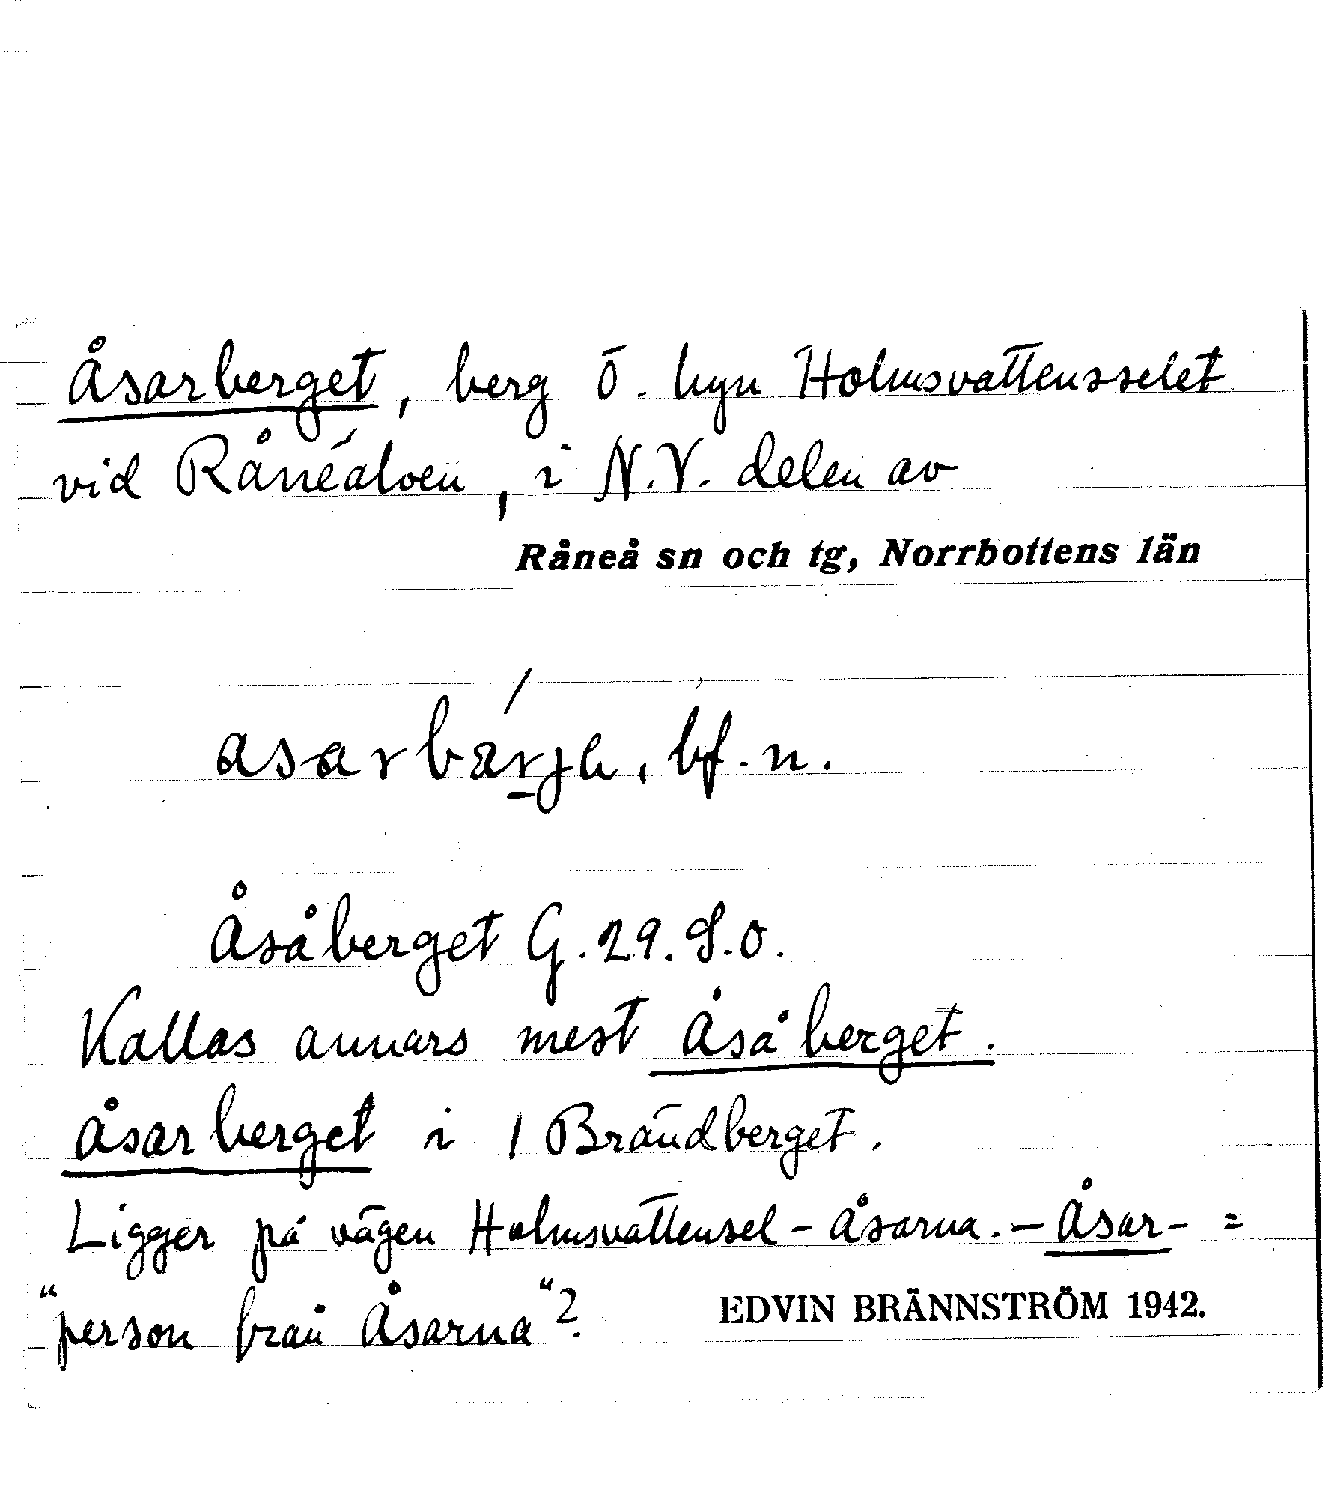 Åsarberget, berg Ö. byn Holmsvattensselet
vid Råneälven, i N.V. delen av
Råneå sn och tg, Norrbottens län
asarbärje, bf. n.
Åsåberget G. 29. S.O.
Kallas annars mest Åsåberget.
Åsarberget i 1 Brändberget.
Ligger på vägen Holmsvattensel - Åsarna. - Åsar- =
"person från Åsarna"?
EDVIN BRÄNNSTRÖM 1942.